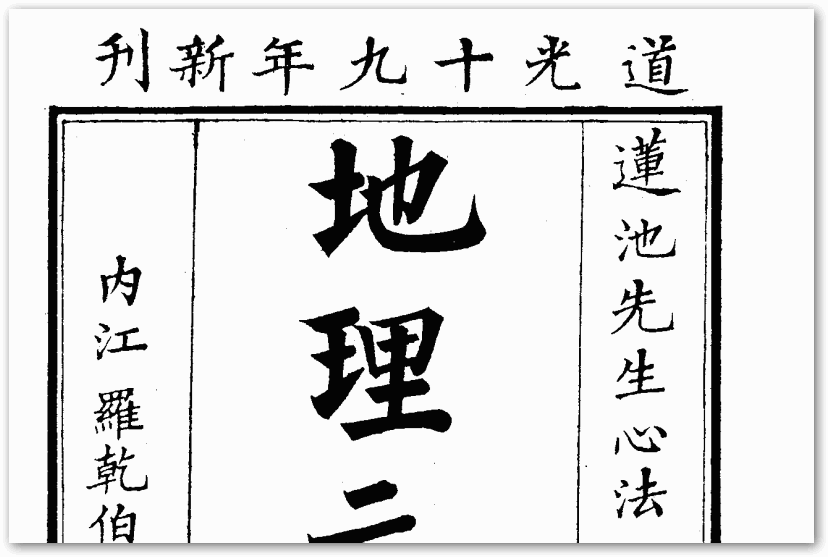 道光十九年新刊
蓮池先生心法
地理
内江羅乾伯